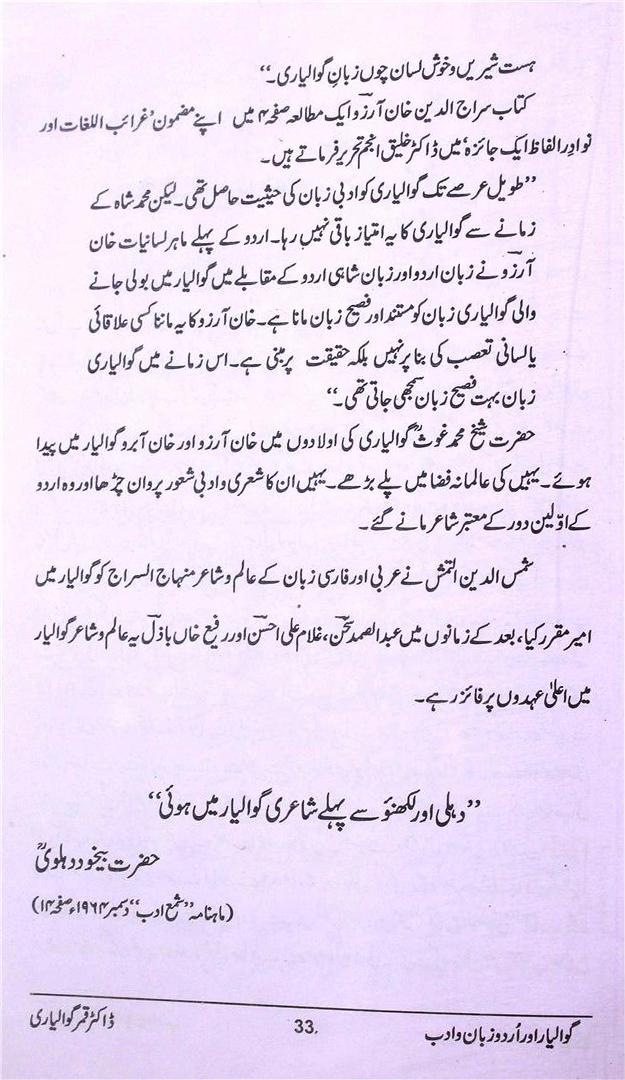 ہست شیریں و خوش لسان چوں زبانِ گوالیاری۔“
کتاب سراج الدین خان آرزو ایک مطالعہ صفحہ ۴ میں اپنے مضمون ’غرائب اللغات اور
نوادر الفاظ ایک جائزہ‘ میں ڈاکٹر خلیق انجم تحریر فرماتے ہیں۔
”طویل عرصے تک گوالیاری کو ادبی زبان کی حیثیت حاصل تھی۔ لیکن محمد شاہ کے
زمانے سے گوالیاری کا یہ امتیاز باقی نہیں رہا۔ اردو کے پہلے ماہر لسانیات خان
آرزو نے زبان اردو اور زبان شاہی اردو کے مقابلے میں گوالیار میں بولی جانے
والی گوالیاری زبان کو مستند اور فصیح زبان مانا ہے۔ خان آرزو کا یہ ماننا کسی علاقائی
یا لسانی تعصب کی بنا پر نہیں بلکہ حقیقت پر مبنی ہے۔ اس زمانے میں گوالیاری
زبان بہت فصیح زبان سمجھی جاتی تھی۔“
حضرت شیخ محمد غوثؒ گوالیاری کی اولادوں میں خان آرزو اور خان آبرو گوالیار میں پیدا
ہوئے۔ یہیں کی عالمانہ فضا میں پلے بڑھے۔ یہیں ان کا شعری و ادبی شعور پروان چڑھا اور وہ اردو
کے اوّلین دور کے معتبر شاعر مانے گئے۔
شمس الدین التمش نے عربی اور فارسی زبان کے عالم و شاعر منہاج السراج کو گوالیار میں
امیر مقرر کیا، بعد کے زمانوں میں عبدالصمد سخن، غلام علی احسن اور رفیع خاں باذل یہ عالم و شاعر گوالیار
میں اعلیٰ عہدوں پر فائز رہے۔
”دہلی اور لکھنؤ سے پہلے شاعری گوالیار میں ہوئی“
حضرت بیخود دہلویؒ
(ماہنامہ ”شمع ادب“ دسمبر ۱۹۶۴ء صفحہ ۱۴)
گوالیار اور اُردو زبان و ادب 33. ڈاکٹر قمر گوالیاری